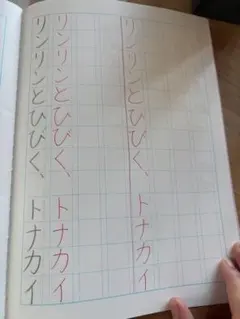 リンリンとひびく、 トナカイ
リンリンとひびく、 トナカイ
リンリンとひびく、 トナカイ